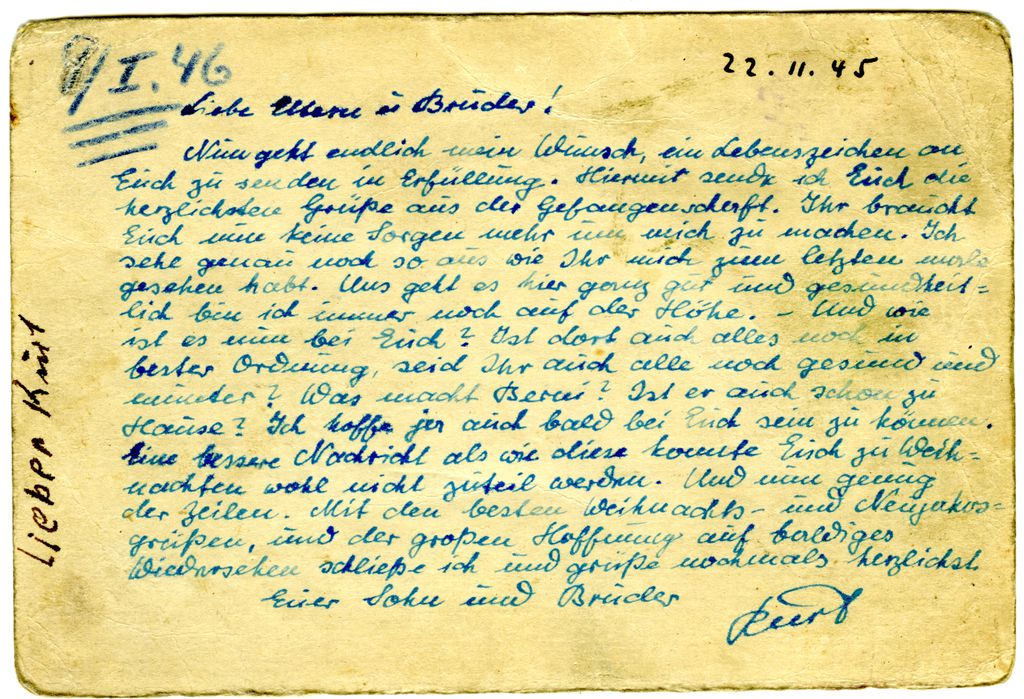 /I.46
22.11.45
Liebe Eltern u Brüder!
Nun geht endlich mein Wunsch, ein Lebenszeichen an
Euch zu senden in Erfüllung. Hiermit sende ich Euch die
herzlichsten Grüße aus der Gefangenschaft. Ihr braucht
Euch nun keine Sorgen mehr um mich zu machen. Ich
sehe genau noch so aus wie Ihr mich zum letzten male
gesehen habt. Uns geht es hier ganz gut und gesundheit=
lich bin ich immer noch auf der Höhe. – Und wie
ist es nun bei Euch? Ist dort auch alles noch in
bester Ordnung, seid Ihr auch alle noch gesund und
munter? Was macht Berni? Ist er auch schon zu
Hause? Ich hoffe ja auch bald bei Euch sein zu können.
Eine bessere Nachricht als wie diese konnte Euch zu Weih=
nachten wohl nicht zuteil werden. Und nun genug
der Zeilen. Mit den besten Weihnachts- und Neujahrs=
grüßen, und der großen Hoffnung auf baldiges
Wiedersehen schließe ich und grüße nochmals herzlichst
Euer Sohn und Bruder
Kurt
Lieber Kurt